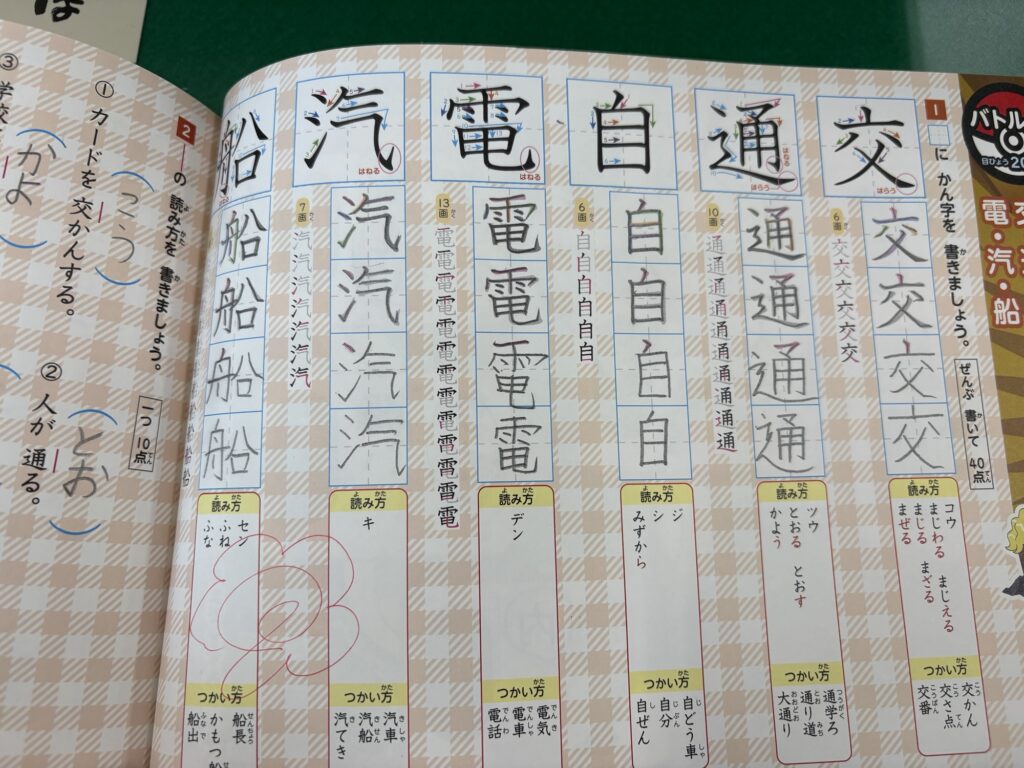 バトル
目ひょう20
電・汽・船
1 □に かん字を 書きましょう。
ぜんぶ 書いて 40点
交
はらう
6画
交交交交交交
交
交
交
交
読み方
コウ
まじわる まじえる
まじる まざる
まぜる
つかい方
交かん
交さ点
交番
通
はねる
はらう
10画
通通通通通通通通通通
通
通
通
通
読み方
ツウ
とおる とおす
かよう
つかい方
通学ろ
通り道
大通り
自
6画
自自自自自自
自
自
自
自
読み方
ジ
シ
みずから
つかい方
自どう車
自分
自ぜん
電
はねる
13画
電電電電電電電電電電電電電
電
電
電
電
読み方
デン
つかい方
電気
電車
電話
汽
はねる
7画
汽汽汽汽汽汽汽
汽
汽
汽
汽
読み方
キ
つかい方
汽車
汽船
汽てき
船
船
船
船
船
読み方
セン
ふね
ふな
つかい方
船長
かもつ船
船出
2 ―の 読み方を 書きましょう。
一つ 10点
① カードを 交かんする。
(こう)
② 人が 通る。
(とお)
③ 学校
(かよ)